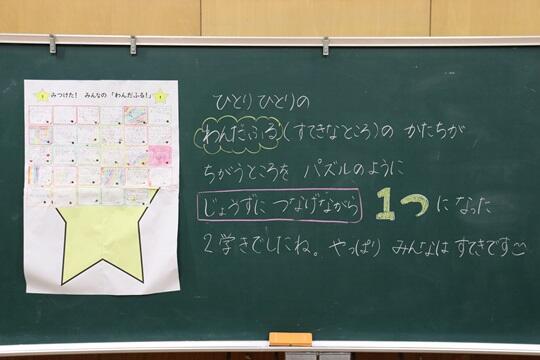 みつけた！ みんなの「わんだふる！」
ひとりひとりの
わんだふる(すてきなところ)の かたちが
ちがうところを パズルのように
じょうずに つなげながら 1つ になった
2学きでしたね。 やっぱり みんなは すてきです